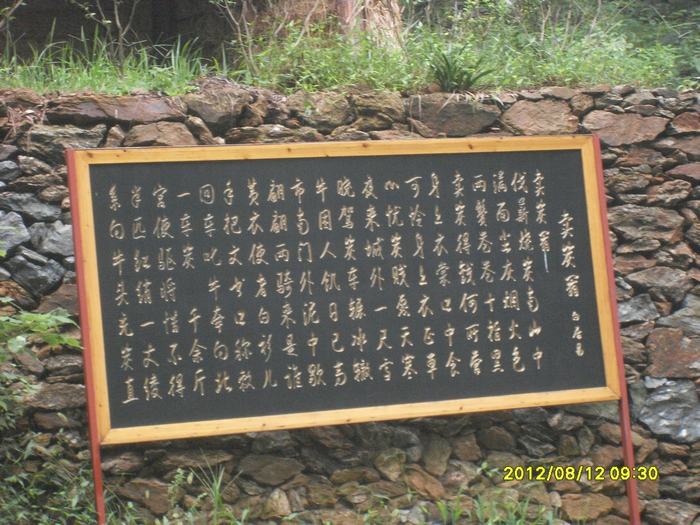 卖炭翁 白居易
卖炭翁
伐薪烧炭南山中
满面尘灰烟火色
两鬓苍苍十指黑
卖炭得钱何所营
身上衣裳口中食
可怜身上衣正单
心忧炭贱愿天寒
夜来城外一尺雪
晓驾炭车辗冰辙
牛困人饥日已高
市南门外泥中歇
翩翩两骑来是谁
黄衣使者白衫儿
手把文书口称敕
回车叱牛牵向北
一车炭 千余斤
宫使驱将惜不得
半匹红绡一丈绫
系向牛头充炭直
2012/08/12 09:30